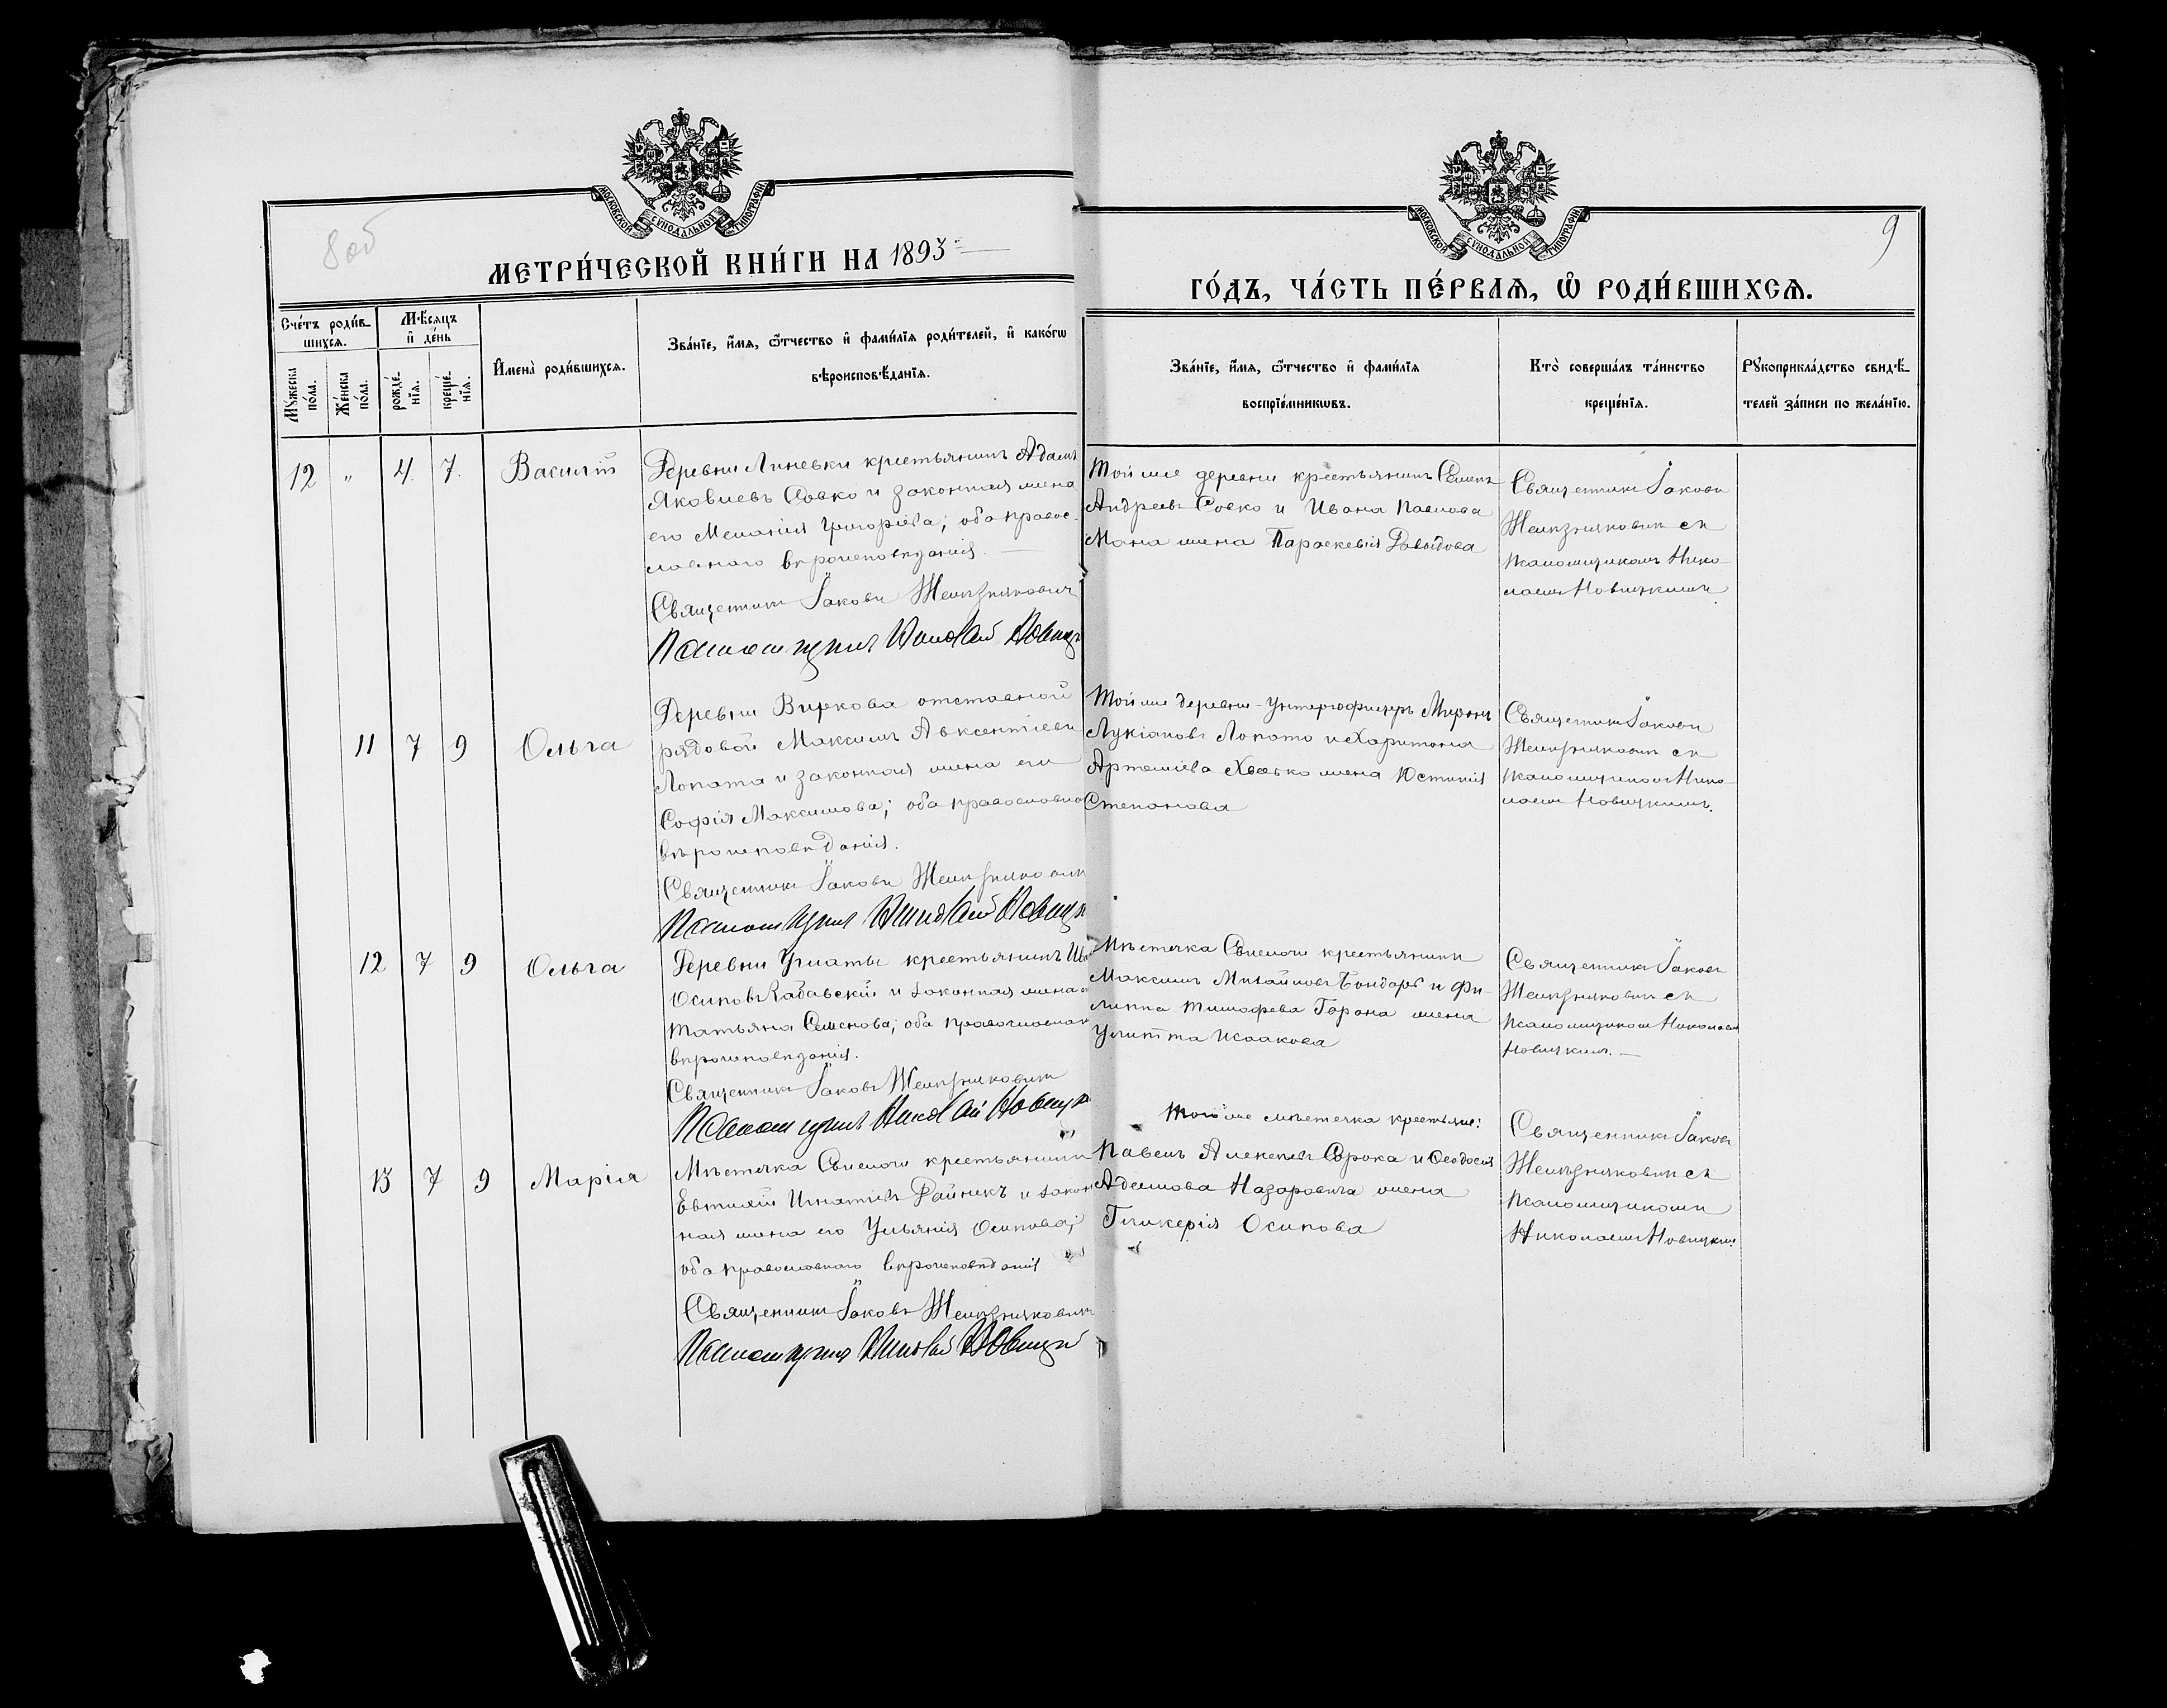 8 об
9
МОСКОВСКОЙ СѴНОДАЛЬНОЙ ТИПОГРАФІИ
МОСКОВСКОЙ СѴНОДАЛЬНОЙ ТИПОГРАФІИ
МЕТРИ́ЧЕСКОЙ КНИ́ГИ НА 1893
ГО́ДЪ, ЧА́СТЬ ПЕ́РВАѦ, Ѽ РОДИ́ВШИХСѦ.
Сче́тъ роди́в-
шихсѧ.
Мѣ́сѧцъ
и҆ де́нь
Мꙋ́жеска
по́ла.
Же́нска
по́ла.
рожде́-
нїѧ.
креще́-
нїѧ.
И҆мена̀ роди́вшихсѧ.
Зва́нїе, и҆́мѧ, ѻ҆́тчество и҆ фами́лїѧ роди́телей, и҆ како́гѡ
вѣроисповѣ́данїѧ.
Зва́нїе, и҆́мѧ, ѻ҆́тчество и҆ фами́лїѧ
воспрїе́мникѡвъ.
Кто̀ соверша́лъ та́инство
креще́нїѧ.
Рꙋкоприкла́дство свидѣ́-
телей за́писи по жела́нїю.
12 " 4. 7. Василій
Деревни Линевки крестьянинъ Адамъ
Яковлевъ Совко и законная жена
его Меланія Григоріева; оба правос-
лавнаго вѣроисповѣданія. —
Священникъ Іаковъ Желѣзняковичъ
Псаломщикъ Николай Новиц
Той же деревни крестьянинъ Семенъ
Андреевъ Совко и Ивана Павлова
жена Параскевія Давыдова
Священникъ Іаковъ
Желѣзняковичъ съ
псаломщикомъ Нико-
лаемъ Новицкимъ.
11 7 9 Ольга
Деревни Виркова отставной
рядовой Максимъ Авксентіевъ
Лопата и законная жена его
Софія Максимова; оба православно
вѣроисповѣданія.
Священникъ Іаковъ Желѣзнякович
Псаломщикъ Николай Новицк
Той же деревни - унтерофицеръ Миронъ
Лукіановъ Лопато и Харитона
Артеміева жена Юстинія
Степанова
Священникъ Іаковъ
Желѣзняковичъ съ
псаломщикомъ Нико-
лаемъ Новицкимъ.
12 7 9 Ольга
Деревни Углаты крестьянинъ
Осиповъ и законная жена
Татьяна Семенова; оба православнаг
вѣроисповѣданія.
Священникъ Іаковъ Желѣзняковичъ
Псаломщикъ Николай Новицк
Мѣстечка Свислочи крестьянинъ
Максимъ Михайловъ Бондарь и Фи-
липпа Тимофеева Горона жена
Улитта Исаакова
Священникъ Іаковъ
Желѣзняковичъ съ
псаломщикомъ Николаемъ
Новицкимъ. —
13 7 9 Марія
Мѣстечка Свислочи крестьянинъ
Евтихій Игнатіевъ и закон
ная жена его Ульянія Осипова;
оба православнаго вѣроисповѣданія
Священникъ Іаковъ Желѣзняковичъ
Псаломщикъ Николай Новицкій
Того же мѣстечка крестьяне:
Павелъ Алексѣевъ Сорока и Ѳеодосія
Адамова Назаровича жена
Гликерія Осипова
Священникъ Іаковъ
Желѣзняковичъ съ
псаломщикомъ
Николаемъ Новицким